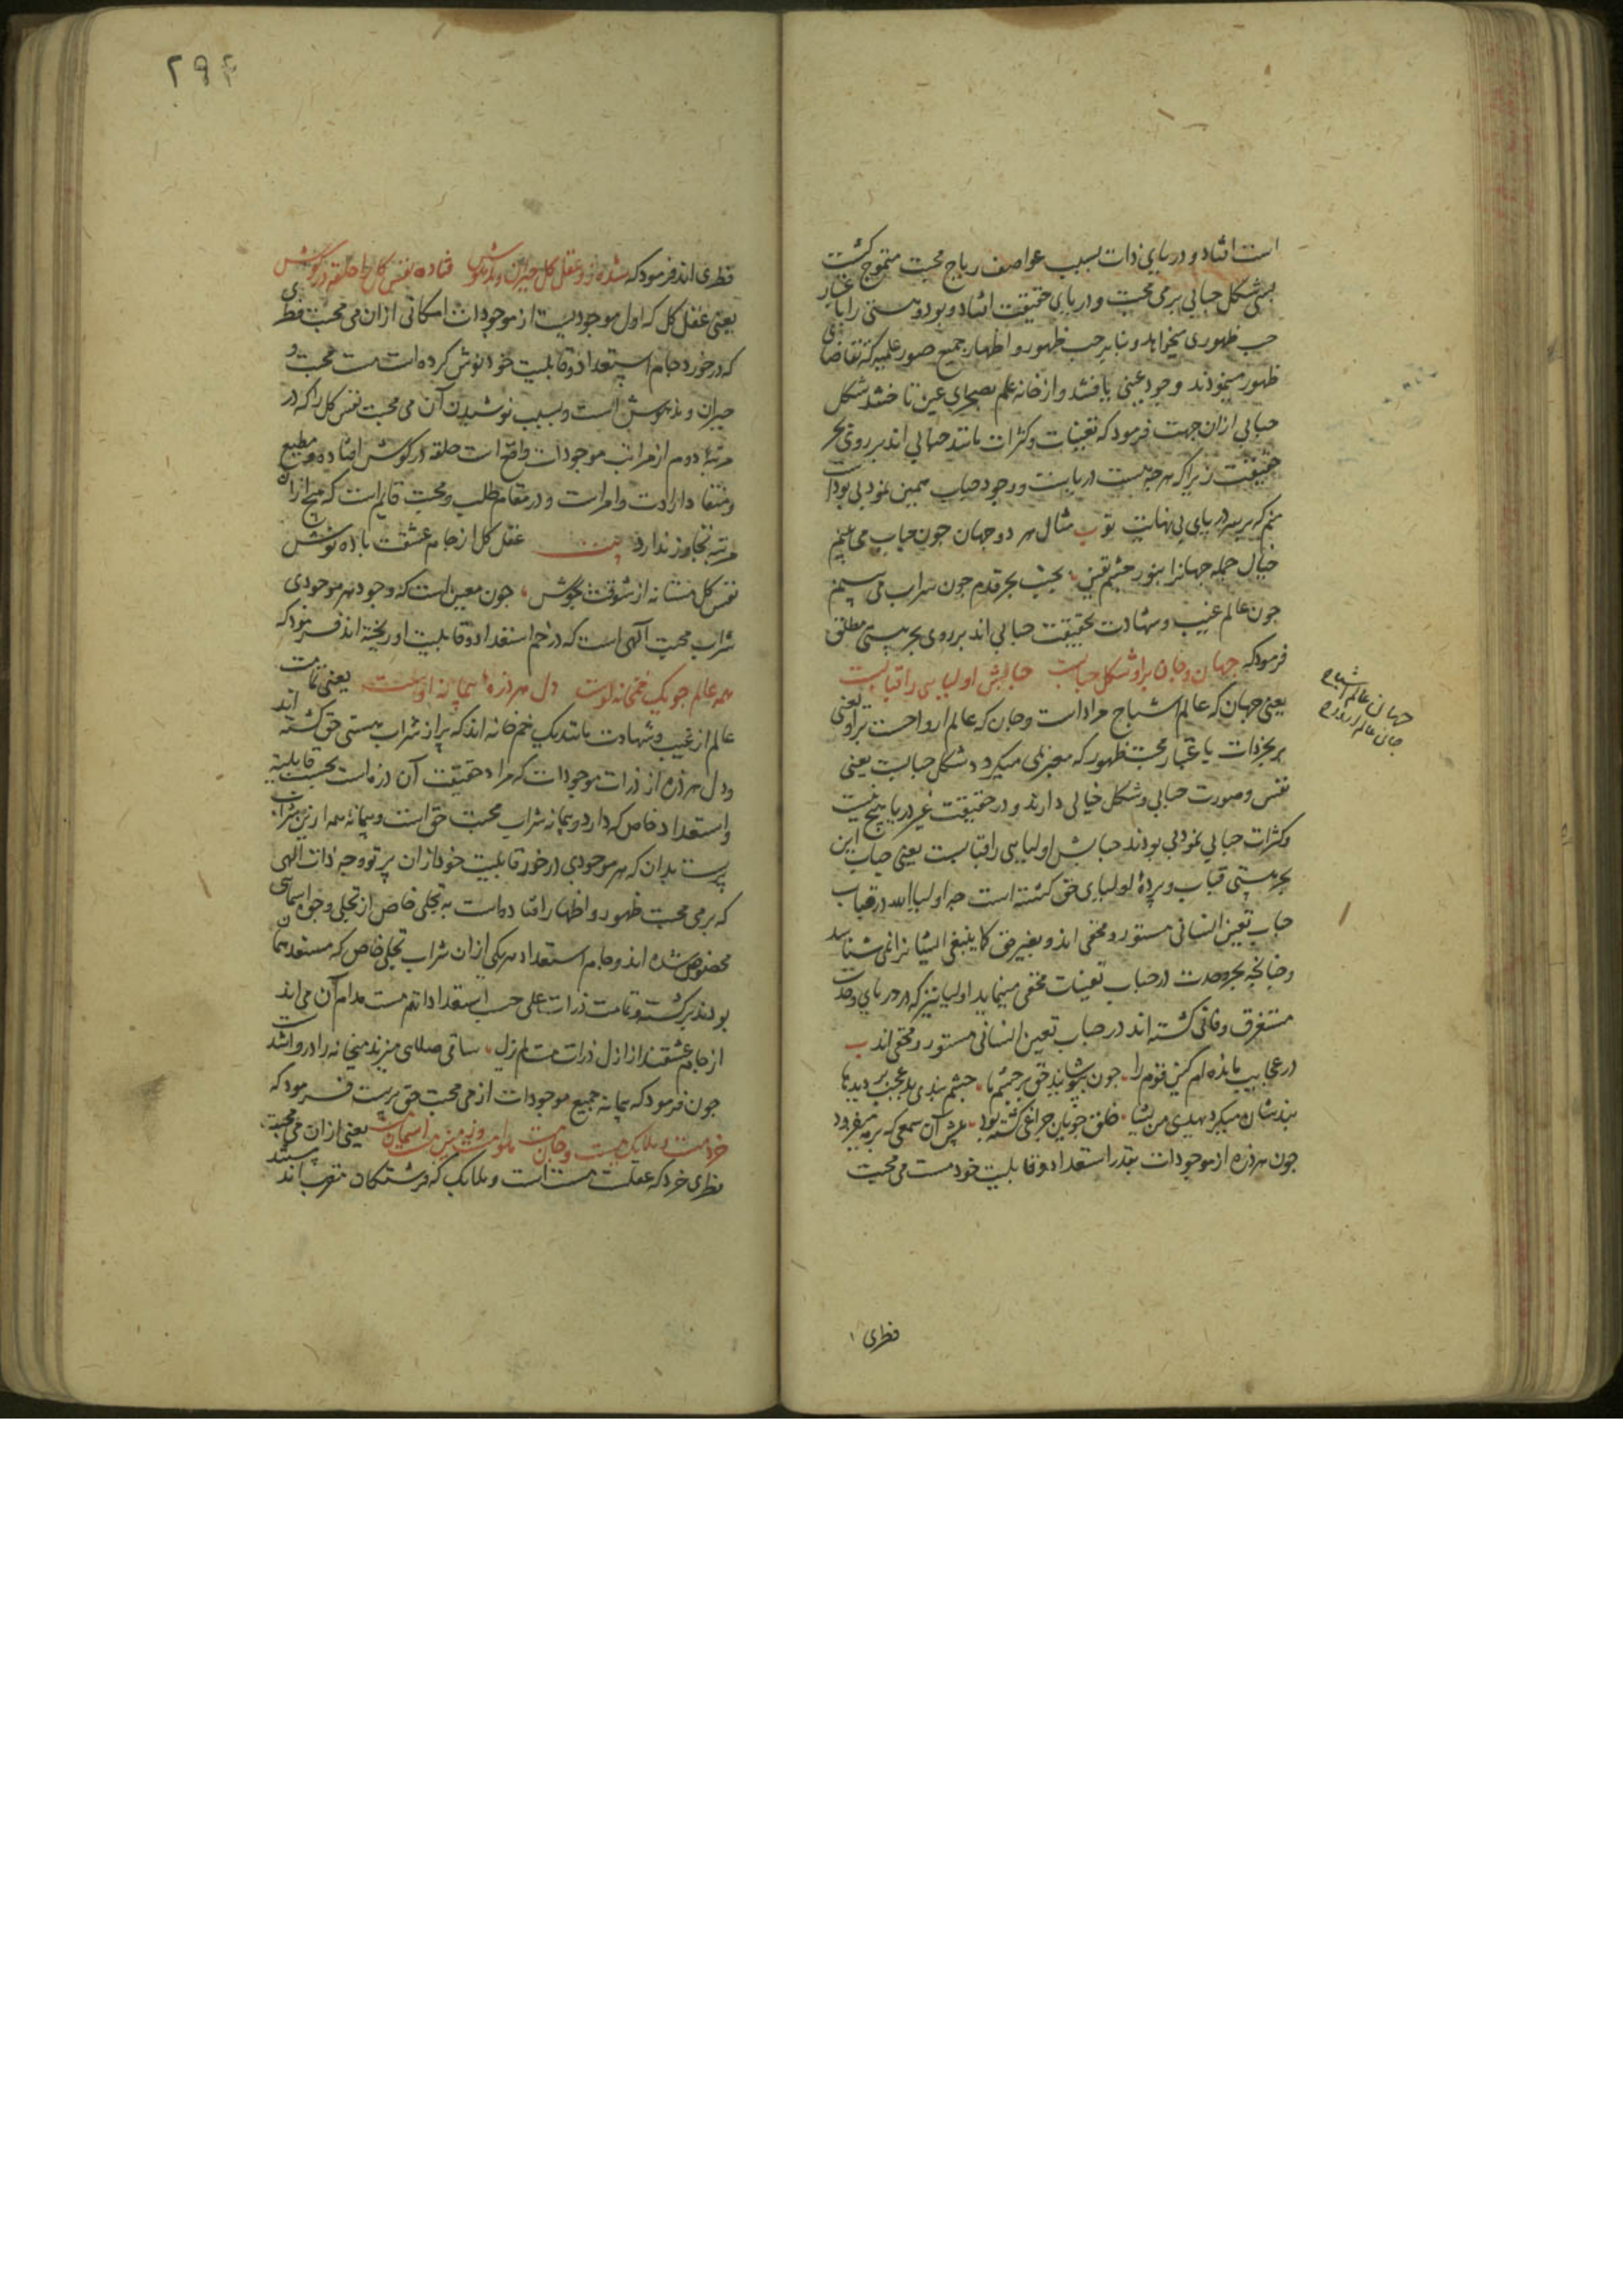 است افتاد و دریای ذات بسبب عواصف ریاح محبت متموج گشت
بسی شکل حبابی بر می محبت و دریای حقیقت افتاد و بود و هستی را باعتبار
حب ظهوری میخواهد و بنابر حب ظهور و اظهار جمیع صور علمیه که تقاضای
ظهور مینمودند وجود عینی یافتند و از خانه علم بصحرای عین تاختند شکل
حبابی ازان جهت فرمود که تعینات و کثرات مانند حبابی اند بر روی بحر
حقیقت زیرا که هرچه هست دریاست و وجود حباب همین نمود بی بود است
منم که بر سر دریای بی نهایت تو ب مثال هر دو جهان جون حباب می بینم
خیال جمله جهانرا بنور چشم یقین بجنب بحر قدم جون سراب می بینم
جون عالم غیب و شهادت بحقیقت حبابی اند بر روی بحر هستی مطلق
فرمود که جهان و جان برو شکل حبابست حبابش اولیایی را قبابست
یعنی جهان که عالم اشباح مراد است و جان که عالم ارواحست برو یعنی
بر بحر ذات باعتبار محبت ظهور که معبر بمی میکردد شکل حبابست یعنی
نقش و صورت حبابی و شکل خیالی دارند و در حقیقت غیر دریا هیچ نیست
و کثرات حبابی نمود بی بودند حبابش اولیایی را قبابست یعنی حباب این
بحر هستی قباب و پردهٔ اولیای حق گشته است جه اولیا الله در قباب
حباب تعین انسانی مستور و مخفی اند و بغیر حق کما ینبغی ایشانرا نمی شناسد
و جنانجه بحر وحدت در حباب تعینات مخفی مینماید اولیا نیز که در دریای وحدت
مستغرق و فانی گشته اند در حباب تعین انسانی مستور و مخفی اند ب
در عجایب مانده ام کین قوم را جون بپوشانید حق بر جشم ما جشم بندی بد عجب بر دیدها
بندشان میکرد یهدی من یشا خلق جویان جراغی گشته بود پیش آن شمعی که بر مه میفزود
جون هر ذره از موجودات بقدر استعداد و قابلیت خود مست می محبت
جهان عالم اشباح
جان عالم ارواح
فطری
۲۹۴
فطری اند فرمود که شده زو عقل کل حیران و مدهوش فتاده نفس کل را حلقه در گوش
یعنی عقل کل که اول موجودیست از موجودات امکانی ازان می محبت فطری
که در خورد جام استعداد و قابلیت خود نوش کرده است مست محبت و
حیران و مدهوش است و بسبب نوشیدن آن می محبت نفس کل را که در
مرتبهٔ دوم از مراتب موجودات واقع است حلقه در گوش افتاده و مطیع
و منقاد ارادت و امر است و در مقام طلب و محبت قایم است که هیچ ازان
مرتبه تجاوز ندارد بیت عقل کل از جام عشقت باده نوش
نفس کل مستانه از شوقت بجوش جون معین است که وجود هر موجودی
شراب محبت آلهی است که در خم استعداد و قابلیت او ریخته اند فرمود که
همه عالم جو یک خمخانه اوست دل هر ذره پیمانه اوست یعنی تمامت
عالم از غیب و شهادت مانند یک خم خانه اند که پر از شراب هستی حق گشته اند
و دل هر ذره از ذرات موجودات که مراد حقیقت آن ذره است بحسب قابلیت
و استعداد خاص که دارد پیمانه شراب محبت حق است و پیمانه همه ازین شراب
پر است بدان که هر موجودی در خور قابلیت خود ازان پرتو وجه ذات الهی
که بر می محبت ظهور و اظهار افتاده است به تجلی خاص از تجلی وجوه اسمایی
مخصوص شده اند و جام استعداد هر یکی ازان شراب تجلی خاص که مستعد همان
بودند پر گشته و تمامت ذرات علی حسب استعداداتهم مست مدام آن می اند
از جام عشقند از ازل ذرات مست لم یزل ساقی صلایی میزند میخانه را در واشدست
جون فرمود که پیمانه جمیع موجودات از می محبت حق پرست فرمود که
خرد مست و ملایک مست و جان مست هوا مست و زمین مست آسمان مست یعنی ازان می محبت
فطری خرد که عقلست مست است و ملایک که فرشتگان مقرب اند مستند